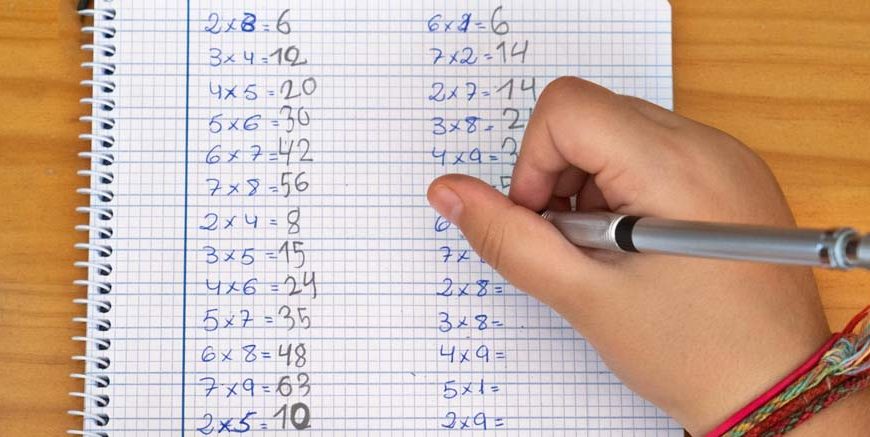 2×3=6
3×4=12
4×5=20
5×6=30
6×7=42
7×8=56
2×4=8
3×5=15
4×6=24
5×7=35
6×8=48
7×9=63
2×5=10
6×1=6
7×2=14
2×7=14
3×8=2
4×9=3
=5
6
7×
2×8=
3×8=
4×9=
5×1=
2×9=